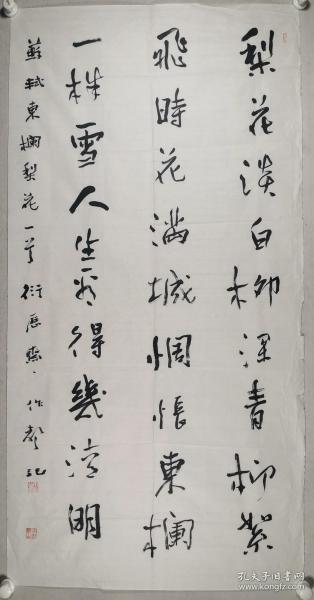 梨花淡白柳深青柳絮
飛時花滿城惆悵東欄
一株雪人生看得幾清明
蘇軾東欄梨花一首
孔夫子旧书网